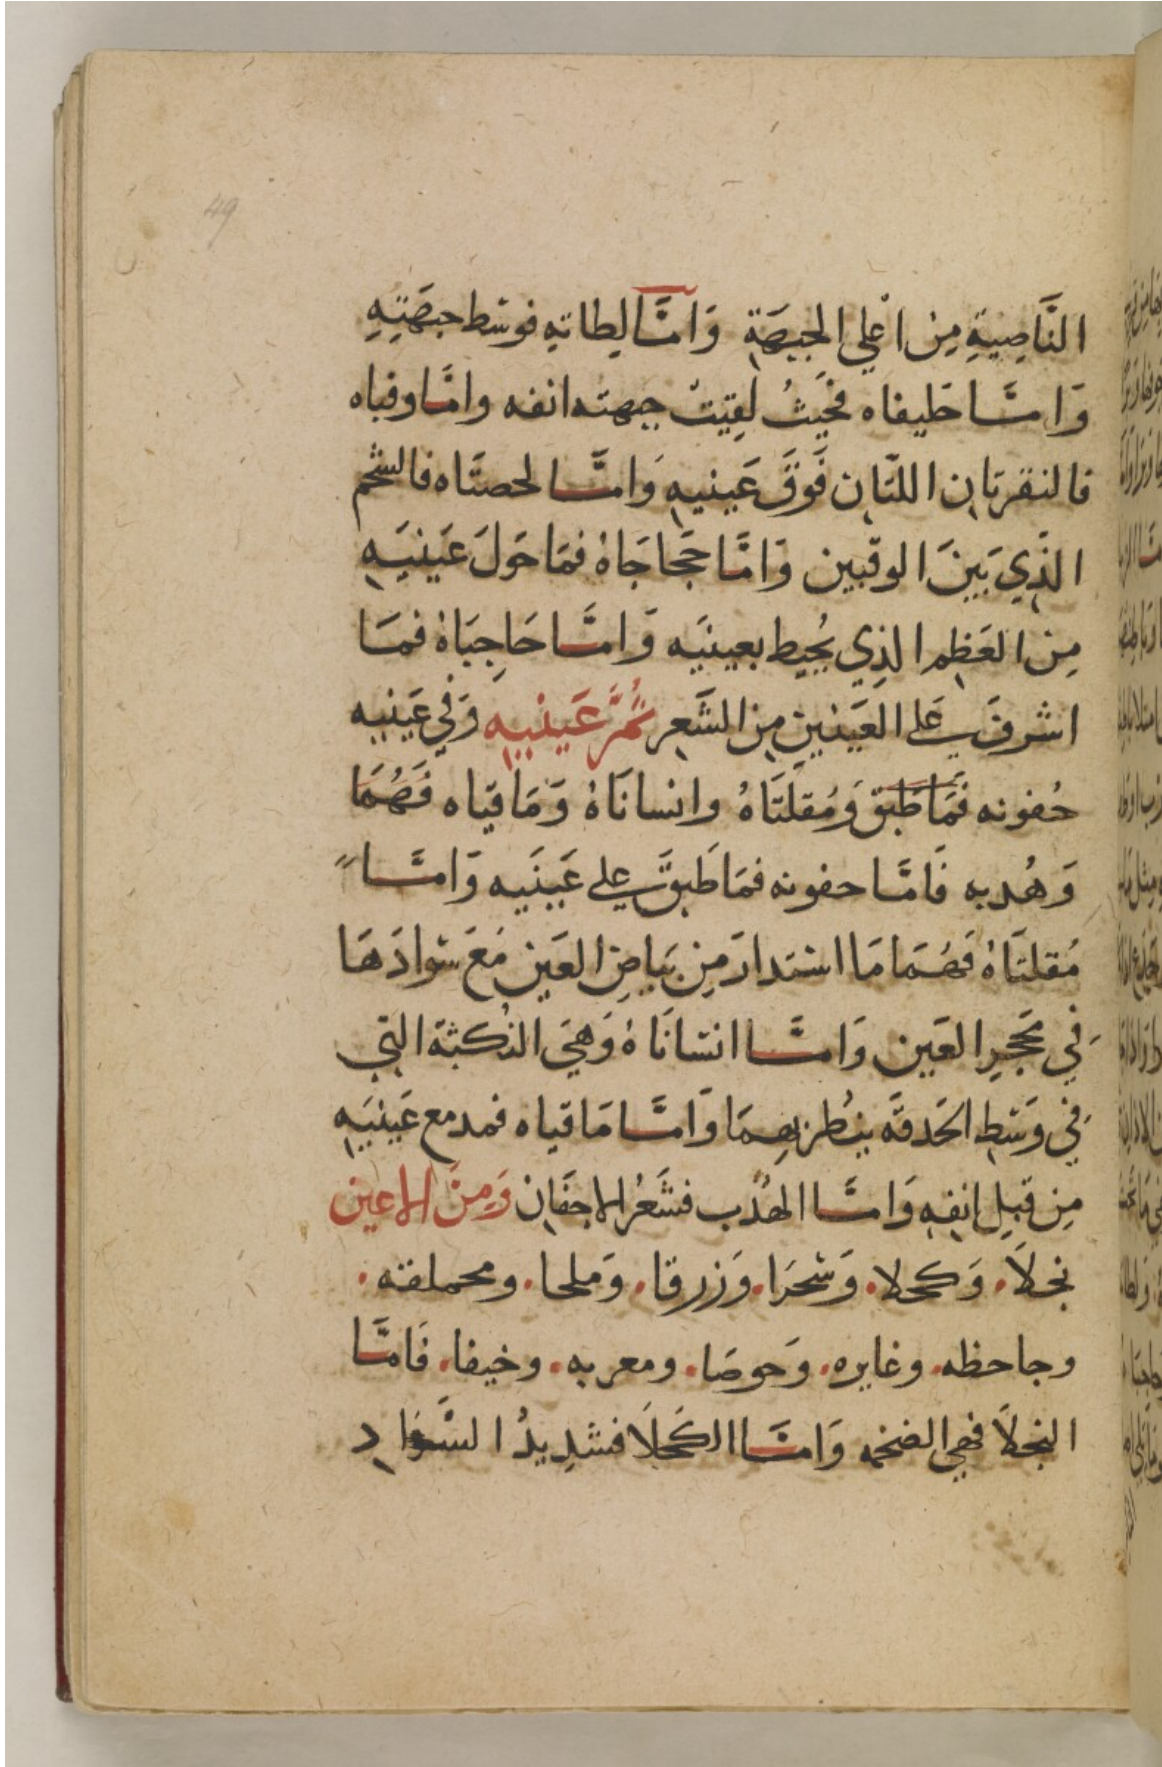 49
النَّاصِيةِ مِن اعْلي الجبهَةِ وَامَّا لِطاتهِ فوسَط جبهَتِهِ
وَامَّا خليفاه فحَيثُ لَقِيَتْ جبهته انفه وامَّا وقباه
فالنقرتان اللتَان فَوقَ عَينيهِ وَامَّا لحصتَاه فالشحم
الذِي بَينَ الوقبين وَامَّا حَجَاجَاهُ فمَا حَولَ عَينيَهِ
مِن العَظمِ الذِي يُحِيط بعينيَه وَامَّا حَاجِبَاهُ فمَا
اشرفَ عَلي العَينينِ مِن الشَعرِ ثُمَّ عَينيهِ وَفي عَينيه
جُفونه فمَا طَبق وَمُقلتَاهُ وانسانَاهُ وَمَاقياه فَهُمَا
وَهُدبه فَامَّا جفونه فمَا طَبقَ علي عَينَيه وَامَّا
مُقلتَاهُ فَهُمَا مَا استدارَ مِن بَياضِ العَين مَعَ سَوادَهَا
في مَحجرِ العَين وَامَّا انسَانَاهُ وَهيَ النُكتَة التي
في وَسَطِ الحَدقَه ينظر بهِمَا وَامَّا مَاقياه فمدمع عَينيَهِ
مِن قبلِ انفهِ وَامَّا الهُدُب فشَعْرُ الاجفَانِ وَمِنَ الاعين
نجلاَ. وَكحلا. وَسَحرَا. وَزرقا. وَملحا. ومحملقه.
وجاحظه. وغايره. وَحوصَا. ومعربه. وخيفا. فَامَّا
النجلاَ فهي الضخمه وَامَّا الكَحلَا فشدِيدُ السَّوَاد